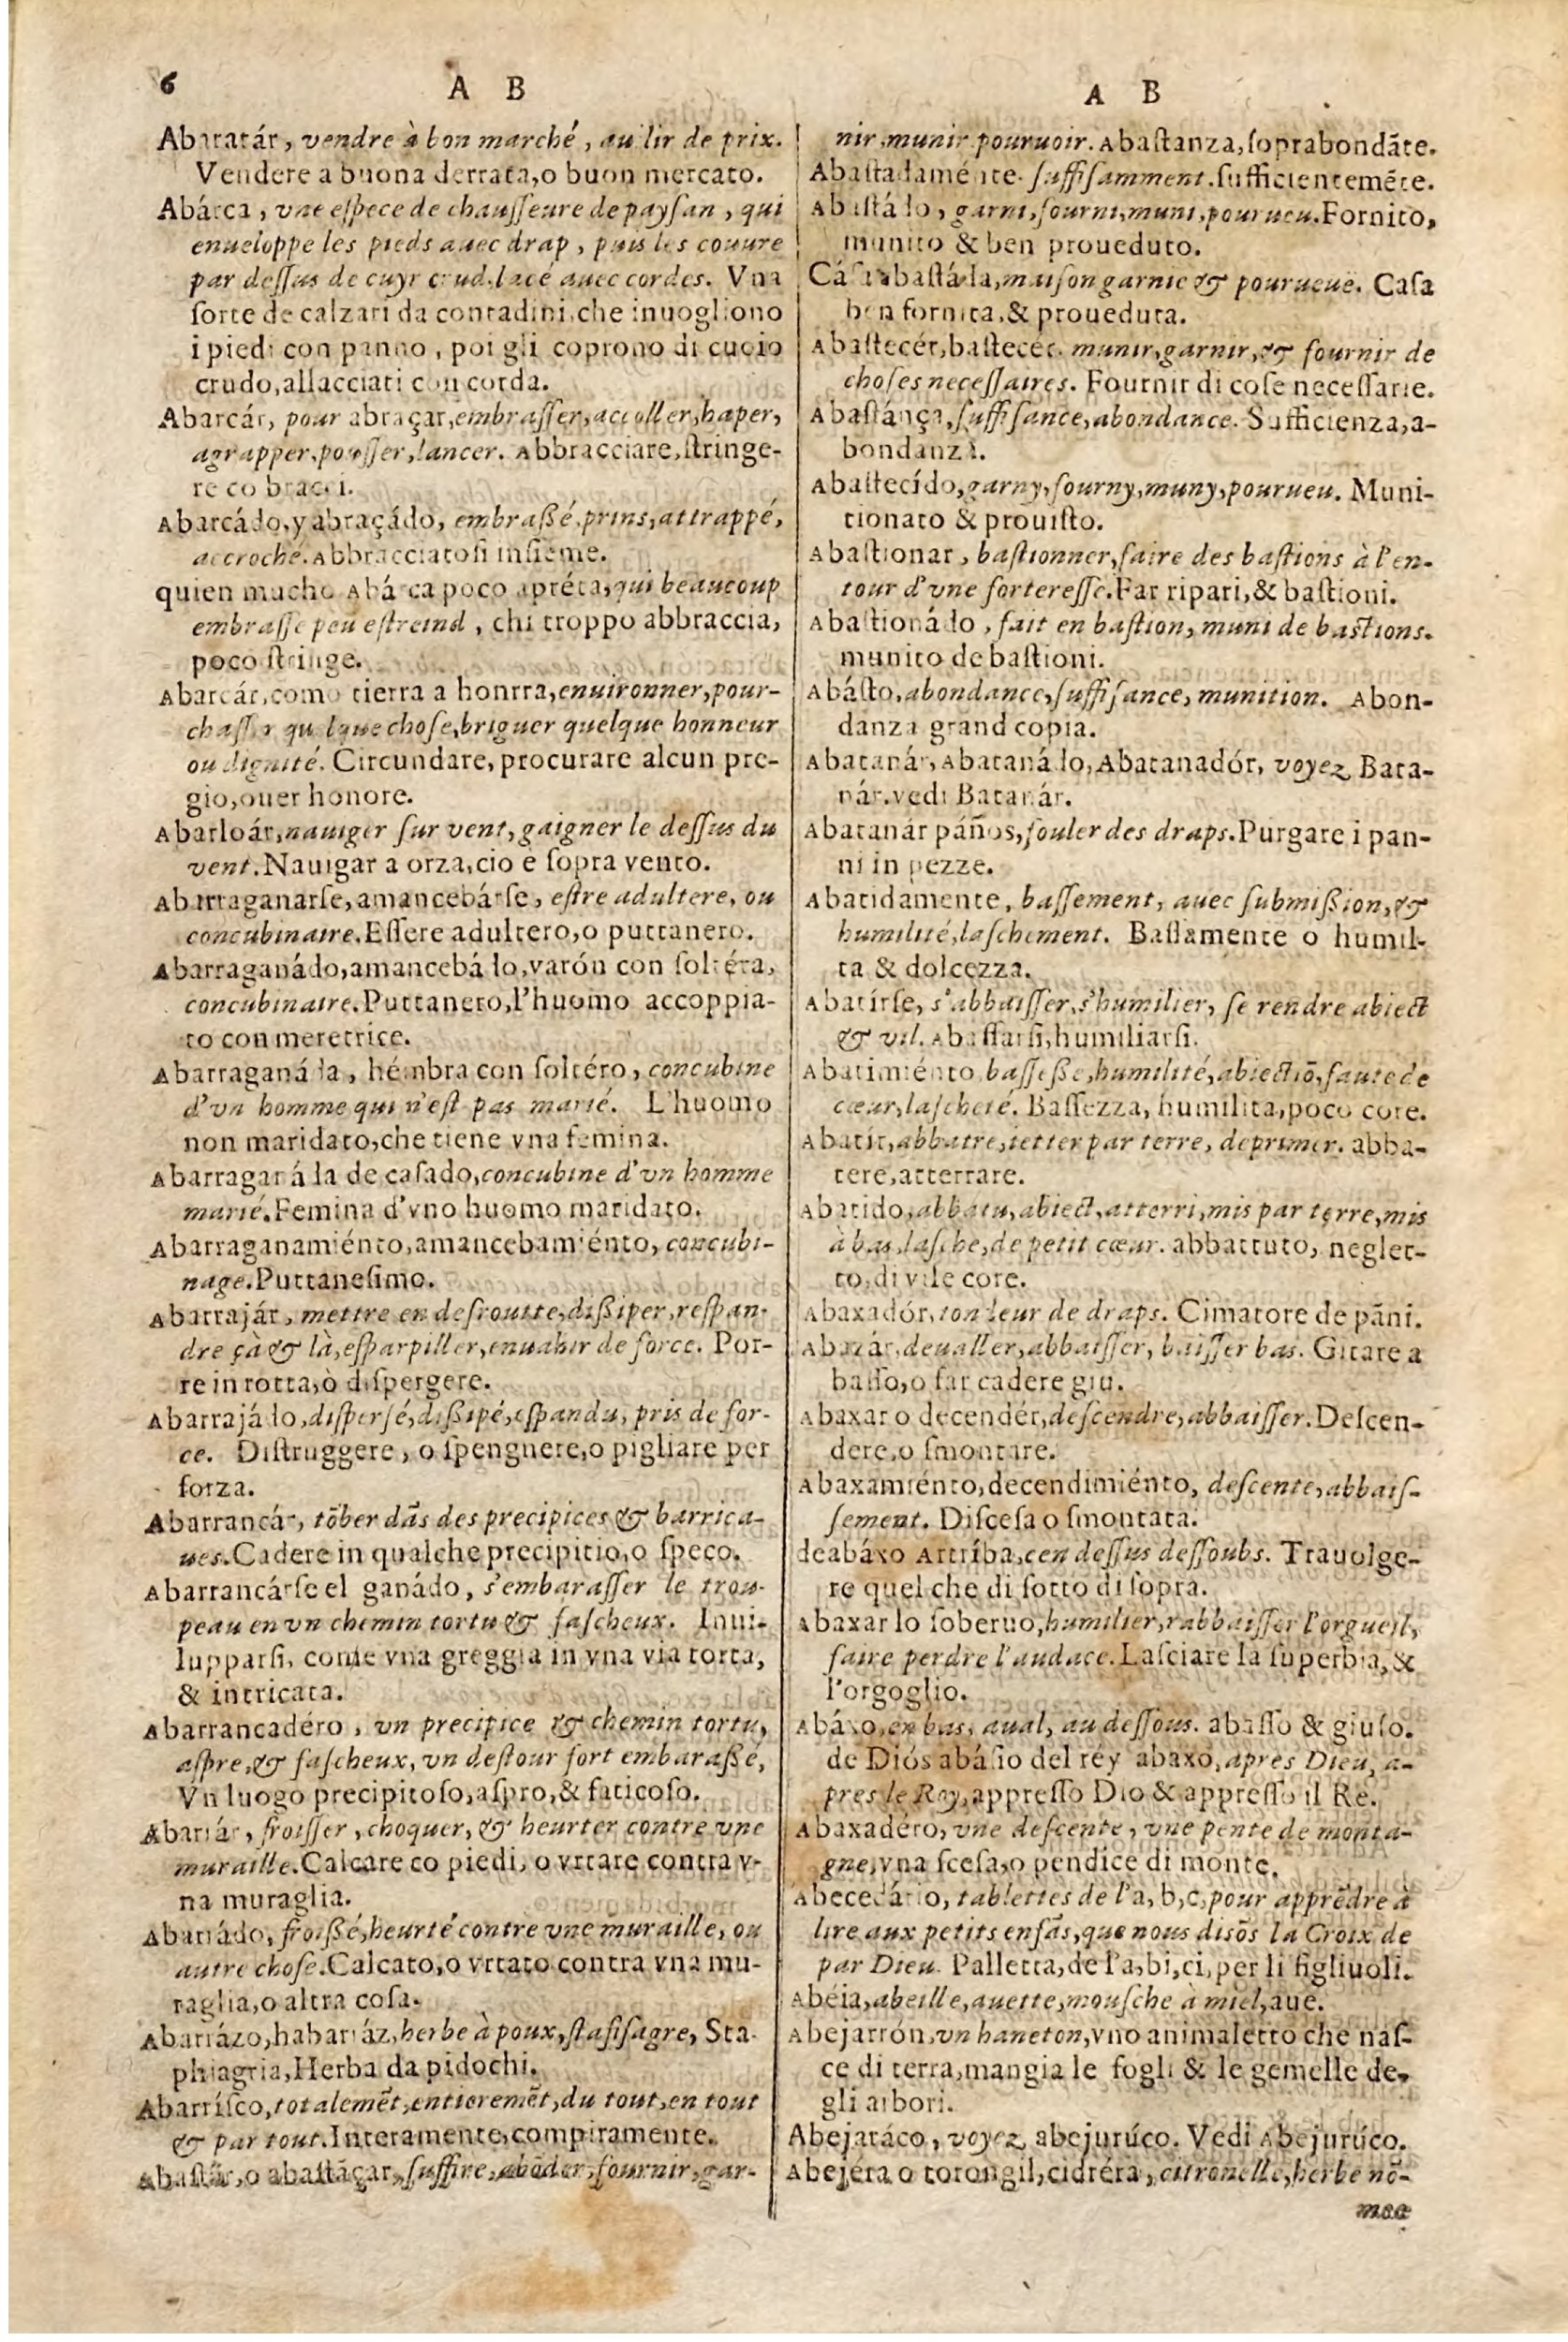 6
A B
Abaratár, vendre à bon marché, au vil de prix.
Vendere a buona derrata,o buon mercato.
Abárca, vne eſpece de chauſſeure de payſan, qui
enueloppe les pieds auec drap, puis les couure
par deſſus de cuyr crud,lacé auec cordes. Vna
ſorte de calzari da contadini,che inuogliono
i piedi con panno, poi gli coprono di cuoio
crudo,allacciati con corda.
Abarcár, pour abraçar,embraſſer,accoller,haper,
agrapper,pouſſer,lancer. Abbracciare,ſtringe-
re co bracci.
Abarcádo,y abraçádo, embraßé,prins,attrappé,
accroché.Abbracciatoſi inſieme.
quien mucho Abárca poco apréta,qui beaucoup
embraſſe peu eſtreind, chi troppo abbraccia,
poco ſtringe.
Abarcár,como tierra a honrra,enuironner,pour-
chaſſer quelque choſe,briguer quelque honneur
ou dignité. Circundare, procurare alcun pre-
gio,ouer honore.
Abarloár,nauiger ſur vent, gaigner le deſſus du
vent.Nauigar a orza,cio e ſopra vento.
Abarraganarſe,amancebárſe, eſtre adultere, ou
concubinaire.Eſſere adultero,o puttanero.
Abarraganádo,amancebádo,varón con ſoltéra,
concubinaire.Puttanero,l'huomo accoppia-
to con meretrice.
Abarraganáda, hémbra con ſoltéro, concubine
d'vn homme qui n'eſt pas marié. L'huomo
non maridato,che tiene vna femina.
Abarraganáda de caſado,concubine d'vn homme
marié.Femina d'vno huomo maridato.
Abarraganamiénto,amancebamiénto, concubi-
nage.Puttaneſimo.
Abarrajár, mettre en deſroutte,dißiper,reſpan-
dre çà & là,eſparpiller,enuahir de force. Por-
re in rotta,ò diſpergere.
Abarrajádo,diſperſé,dißipé,eſpandu, pris de for-
ce. Diſtruggere, o ſpengnere,o pigliare per
forza.
Abarrancár, tõber dãs des precipices & barrica-
ues.Cadere in qualche precipitio,o ſpeco.
Abarrancárſe el ganádo, s'embaraſſer le trou-
peau en vn chemin tortu & faſcheux. Inui-
lupparſi, come vna greggia in vna via torta,
& intricata.
Abarrancadéro, vn precipice & chemin tortu,
aſpre,& faſcheux, vn deſtour fort embaraßé,
Vn luogo precipitoſo,aſpro,& faticoſo.
Abarrár, froiſſer, choquer, & heurter contre vne
muraille.Calcare co piedi, o vrtare contra v-
na muraglia.
Abarrádo, froißé,heurté contre vne muraille, ou
autre choſe.Calcato,o vrtato contra vna mu-
raglia,o altra coſa.
Abarrázo,habarráz,herbe à poux,ſtaſiſagre, Sta-
phiagria,Herba da pidochi.
Abarríſco,totalemẽt,entieremẽt,du tout,en tout
& par tout.Interamente,compiramente.
Abaſtár,o abaſtãçar,ſuffire,abõder,fournir,gar-
A B
nir,munir,pouruoir.Abaſtanza,ſoprabondãte.
Abaſtadaménte.ſuffiſamment.ſufficientemẽte.
Abaſtádo, garni,fourni,muni,pourueu.Fornito,
munito & ben proueduto.
Cáſa abaſtáda,maiſon garnie & pourueue. Caſa
ben fornita,& proueduta.
Abaſtecér,baſtecér. munir,garnir,& fournir de
choſes neceſſaires. Fournir di coſe neceſſarie.
Abaſtánça,ſuffiſance,abondance. Sufficienza,a-
bondanza.
Abaſtecído,garny,fourny,muny,pourueu. Muni-
tionato & prouiſto.
Abaſtionar, baſtionner,faire des baſtions à l'en-
tour d'vne fortereſſe.Far ripari,& baſtioni.
Abaſtionádo, fait en baſtion, muni de baſtions.
munito de baſtioni.
Abáſto,abondance,ſuffiſance, munition. Abon-
danza grand copia.
Abatanár,Abatanádo,Abatanadór, voyez Bata-
nár.vedi Batanár.
Abatanár páños,fouler des draps.Purgare i pan-
ni in pezze.
Abatidamente, baſſement, auec ſubmißion,&
humilité,laſchement. Baſſamente o humil-
ta & dolcezza.
Abatírſe, s'abbaiſſer,s'humilier, ſe rendre abiect
& vil. Abaſſarſi,humiliarſi.
Abatimiénto baſſeße,humilité,abiectiõ,faute de
cœur,laſcheté. Baſſezza, humilita,poco core.
Abatír,abbatre,ietter par terre, deprimer. abba-
tere,atterrare.
Abatido,abbatu,abiect,atterri,mis par terre,mis
à bas,laſche,de petit cœur. abbattuto, neglet-
to,di vile core.
Abaxadór,tondeur de draps. Cimatore de pãni.
Abaxár,deualler,abbaiſſer, baiſſer bas. Gitare a
baſſo,o far cadere giu.
Abaxar o decendér,deſcendre,abbaiſſer.Deſcen-
dere,o ſmontare.
Abaxamiénto,decendimiénto, deſcente,abbaiſ-
ſement. Diſceſa o ſmontata.
deabáxo Arríba,cen deſſus deſſoubs. Trauolge-
re quel che di ſotto di ſopra.
Abaxar lo ſoberuo,humilier,rabbaiſſer l'orgueil,
faire perdre l'audace.Laſciare la ſuperbia,&
l'orgoglio.
Abáxo,en bas, aual, au deſſous. abaſſo & giuſo.
de Diós abáxo del réy abaxo,apres Dieu, a-
pres le Roy,appreſſo Dio & appreſſo il Re.
Abaxadéro, vne deſcente, vne pente de monta-
gne,vna ſceſa,o pendice di monte.
Abecedário, tablettes de l'a, b,c,pour apprẽdre à
lire aux petits enfãs,que nous diſõs la Croix de
par Dieu. Palletta,de l'a,bi,ci,per li figliuoli.
Abéia,abeille,auette,mouſche à miel,aue.
Abejarrón,vn haneton,vno animaletto che naſ-
ce di terra,mangia le fogli & le gemelle de-
gli arbori.
Abejaráco, voyez abejurúco. Vedi Abejurúco.
Abejéra o torongil,cidréra, citronelle,herbe nõ-
mee